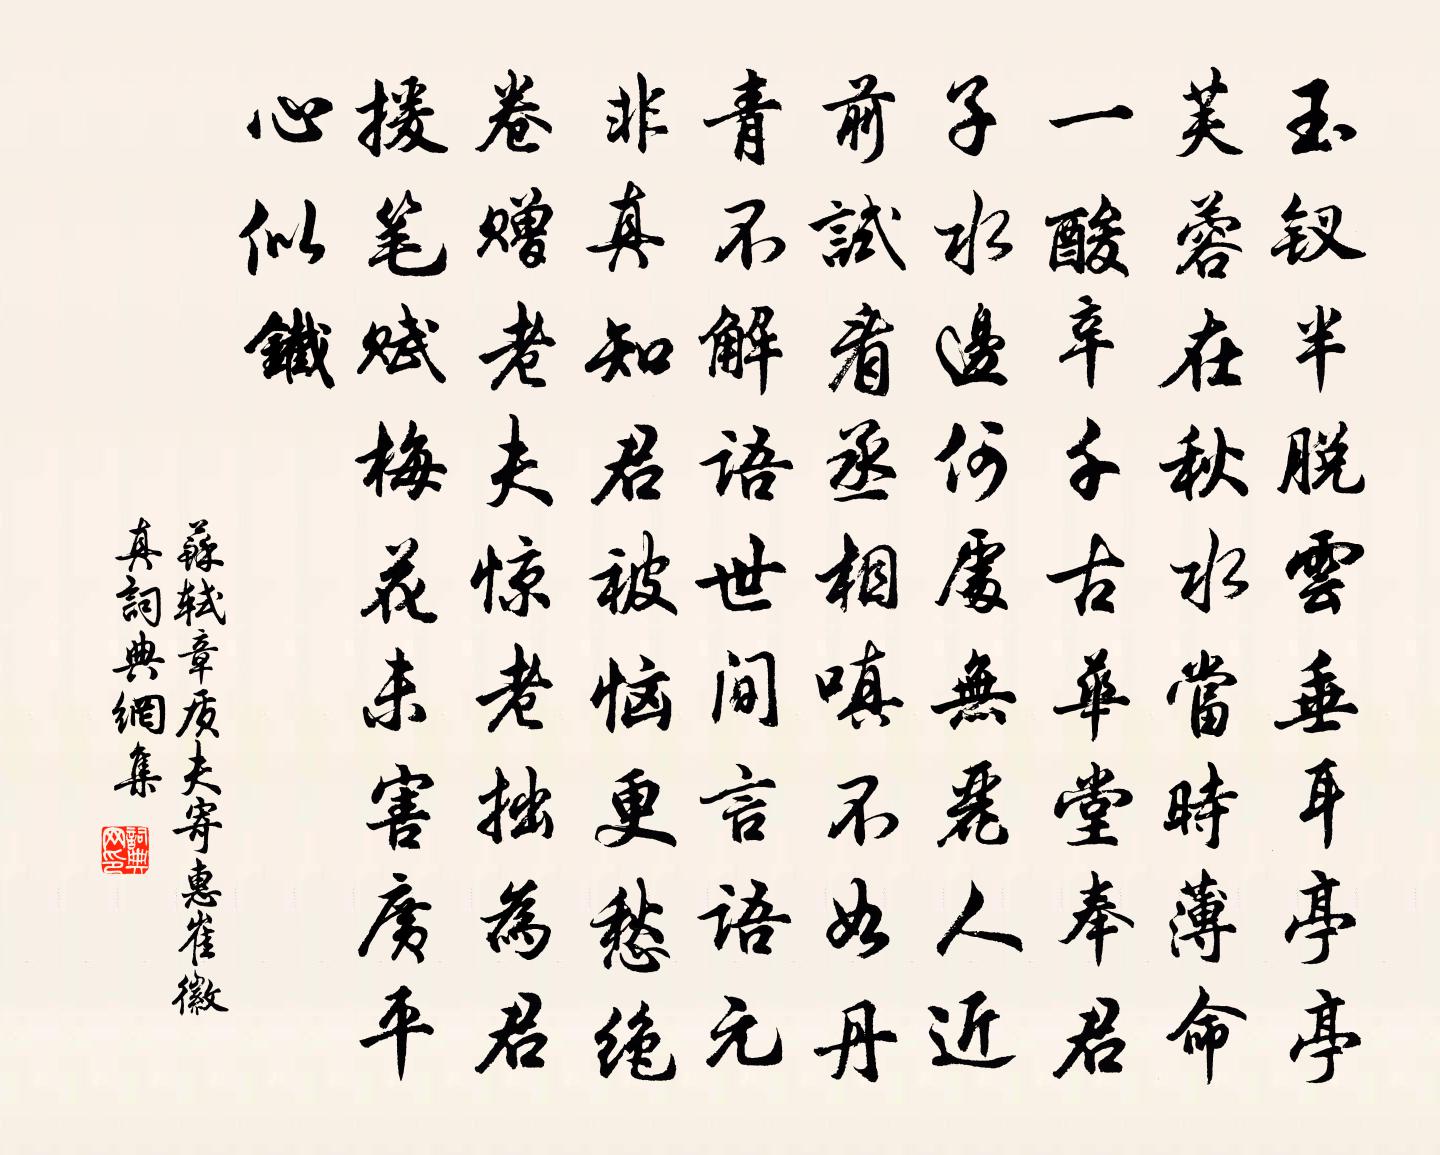 玉钗半脱雲垂耳亭亭
芙蓉在秋水當時薄命
一酸辛千古華堂奉君
子水邊何處無麗人近
前試看丞相嗔不如丹
青不解语世间言语元
非真知君被恼更愁绝
卷赠老夫惊老拙為君
援笔赋梅花未害廣平
心似鐵
蘇軾章质夫寄惠崔徽
真詞典網集
詞典
网印